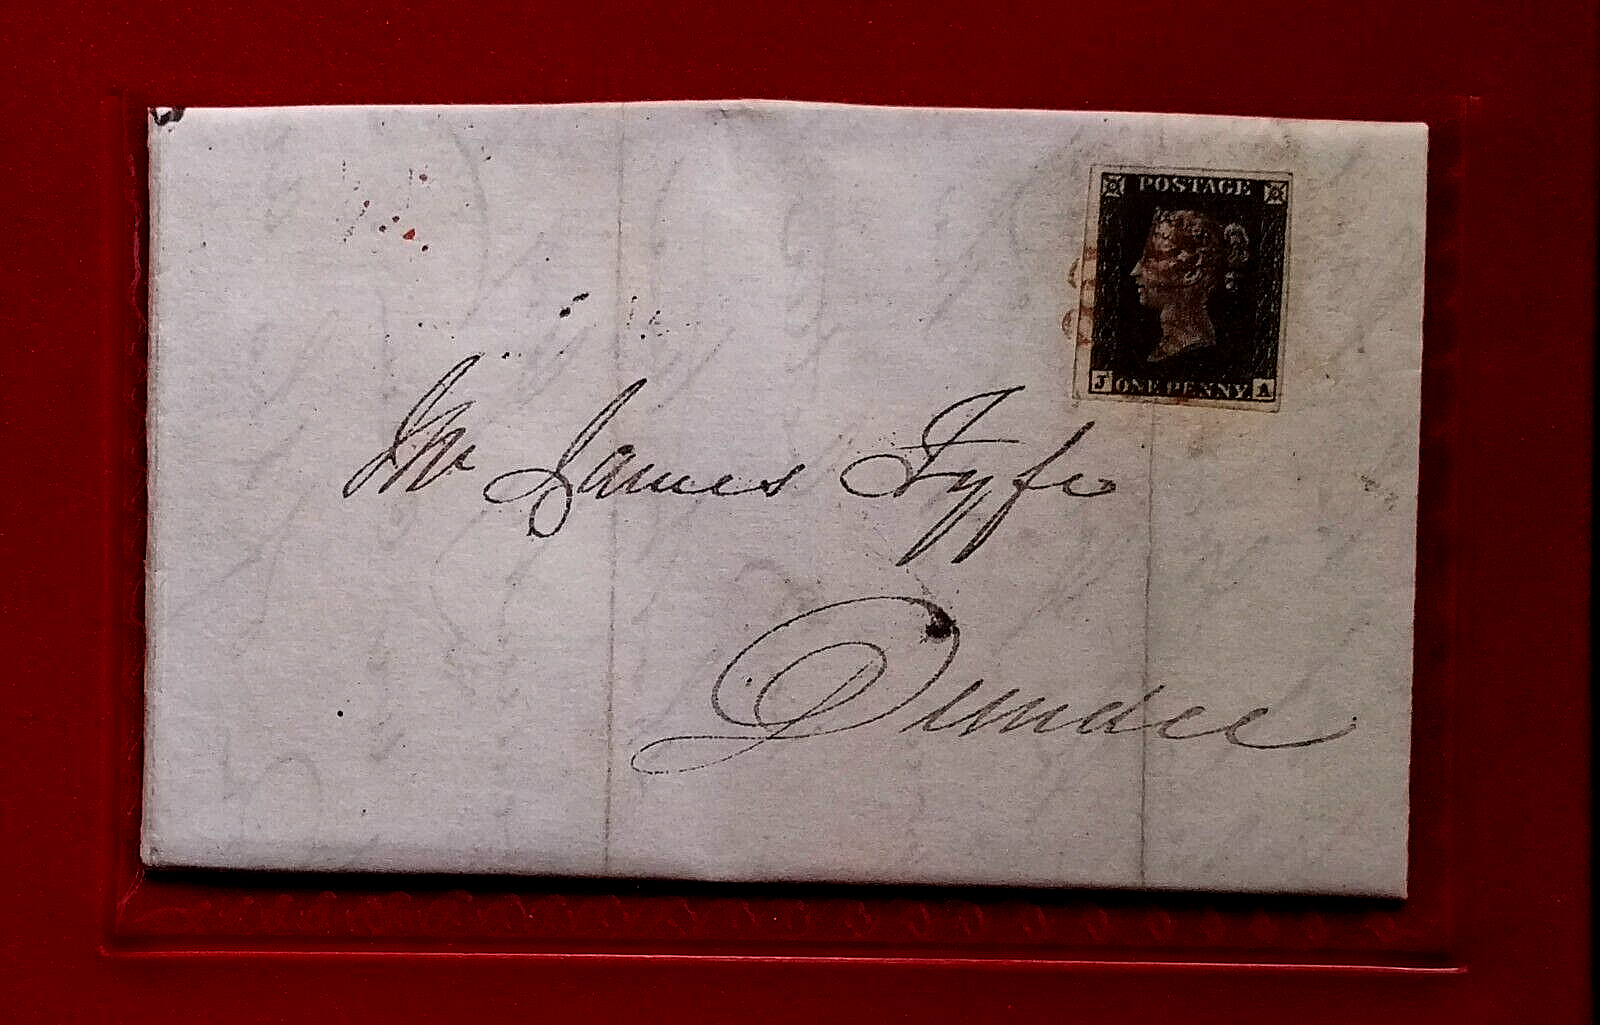 POSTAGE
J ONE PENNY. A
Mr James Fyfe
Dundee